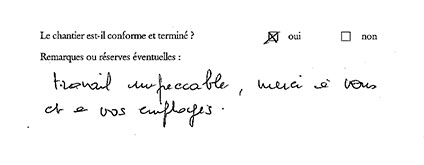 Le chantier est-il conforme et terminé ? ☒ oui ☐ non
Remarques ou réserves éventuelles :
travail impeccable, merci à vous
et à vos employés.